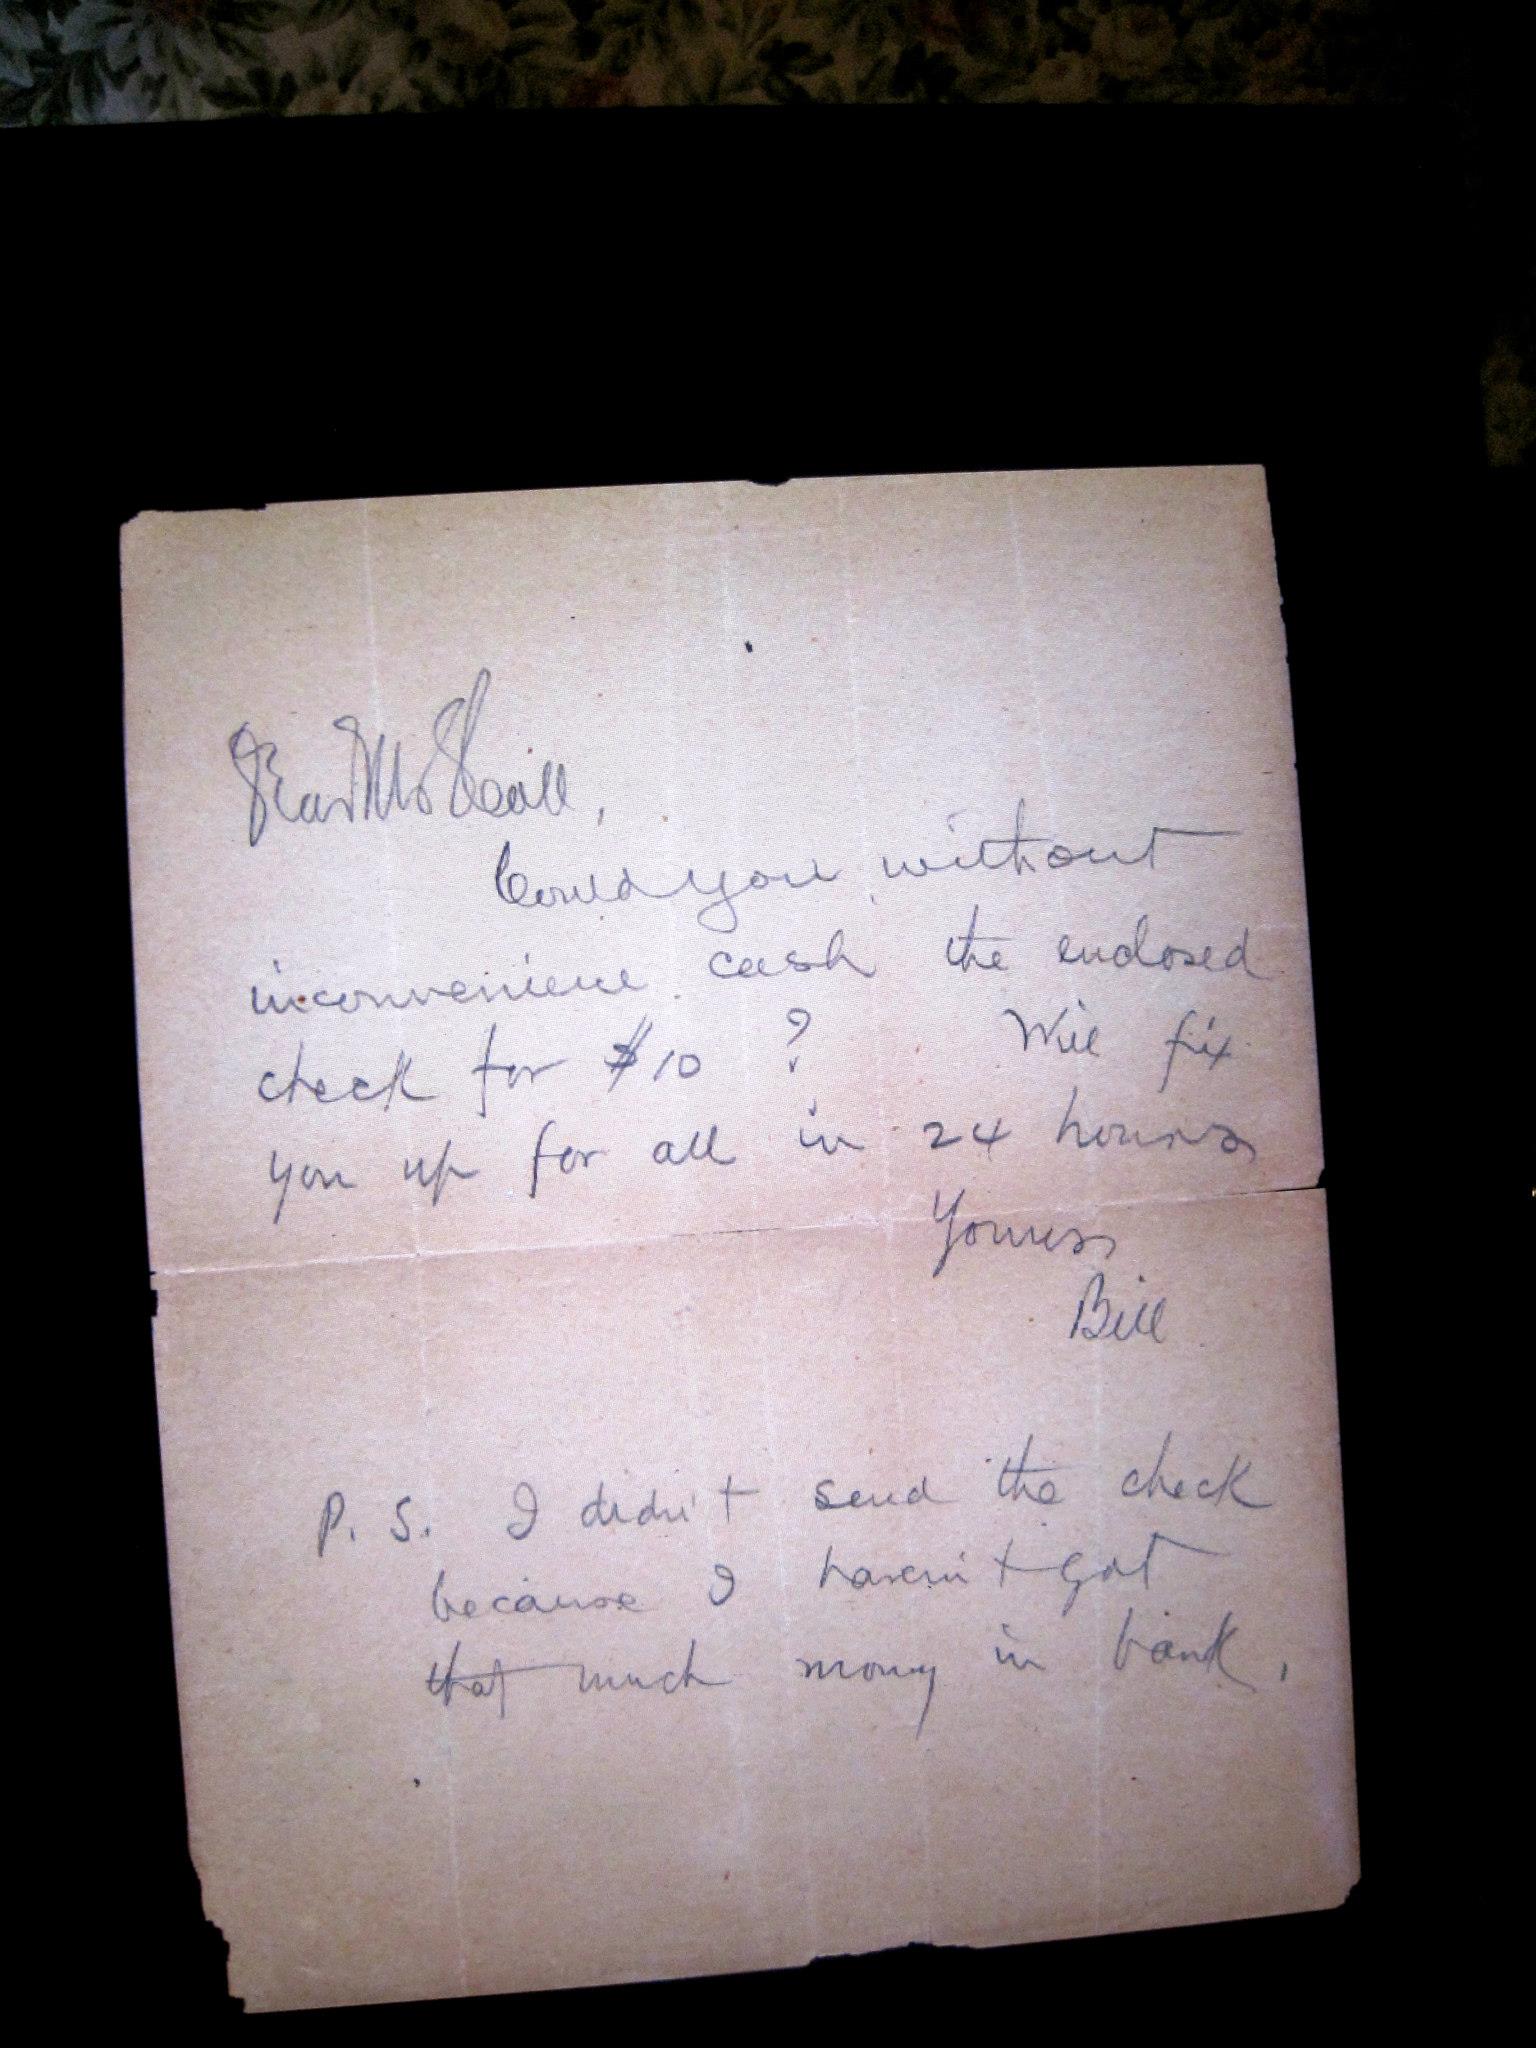 Dear Mr
Could you without
inconvenience cash the enclosed
check for $10 ? Will fix
you up for all in 24 hours
Yours,
Bill
P. S. I didn't send the check
because I haven't got
that much money in bank.